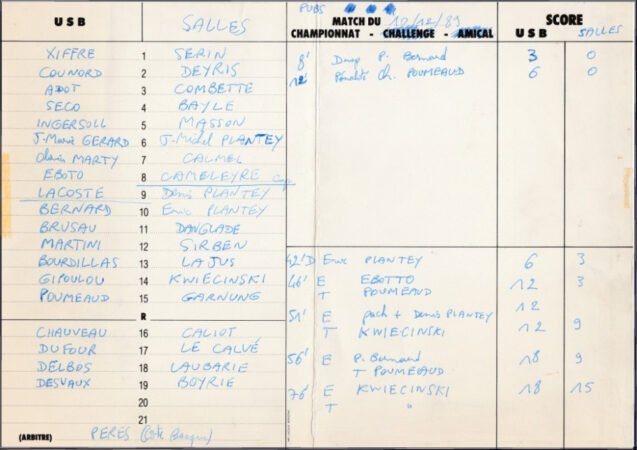 USB SALLES
XIFFRE 1 SERIN
COUNORD 2 DEYRIS
ADOT 3 COMBETTE
SECO 4 BAYLE
INGERSOLL 5 MASSON
J-Marie GERARD 6 J-Michel PLANTEY
MARTY 7 CALMEL
EBOTO 8 CAMELEYRE cap
LACOSTE 9 Denis PLANTEY
BERNARD 10 Eric PLANTEY
BRUSAU 11 DANGLADE
MARTINI 12 SIRBEN
BOURDILLAS 13 LAJUS
GIPOULOU 14 KWIECINSKI
POUMEAUD 15 GARNUNG
R
CHAUVEAU 16 CALIOT
DUFOUR 17 LE CALVÉ
DELBOS 18 LAUBARIE
DESVAUX 19 BOYRIE
20
21
(ARBITRE) PERES (Côte Basque)
PUBS
MATCH DU 10/12/89
CHAMPIONNAT - CHALLENGE - AMICAL
SCORE
USB SALLES
8' Drop P. Bernard 3 0
12' Pénalité Ch. POUMEAUD 6 0
42' D Eric PLANTEY 6 3
46' E EBOTTO 12 3
T POUMEAUD
51' E pack + Denis PLANTEY 12
T KWIECINSKI 12 9
56' E P. Bernard 18 9
T POUMEAUD
76' E KWIECINSKI 18 15
T "